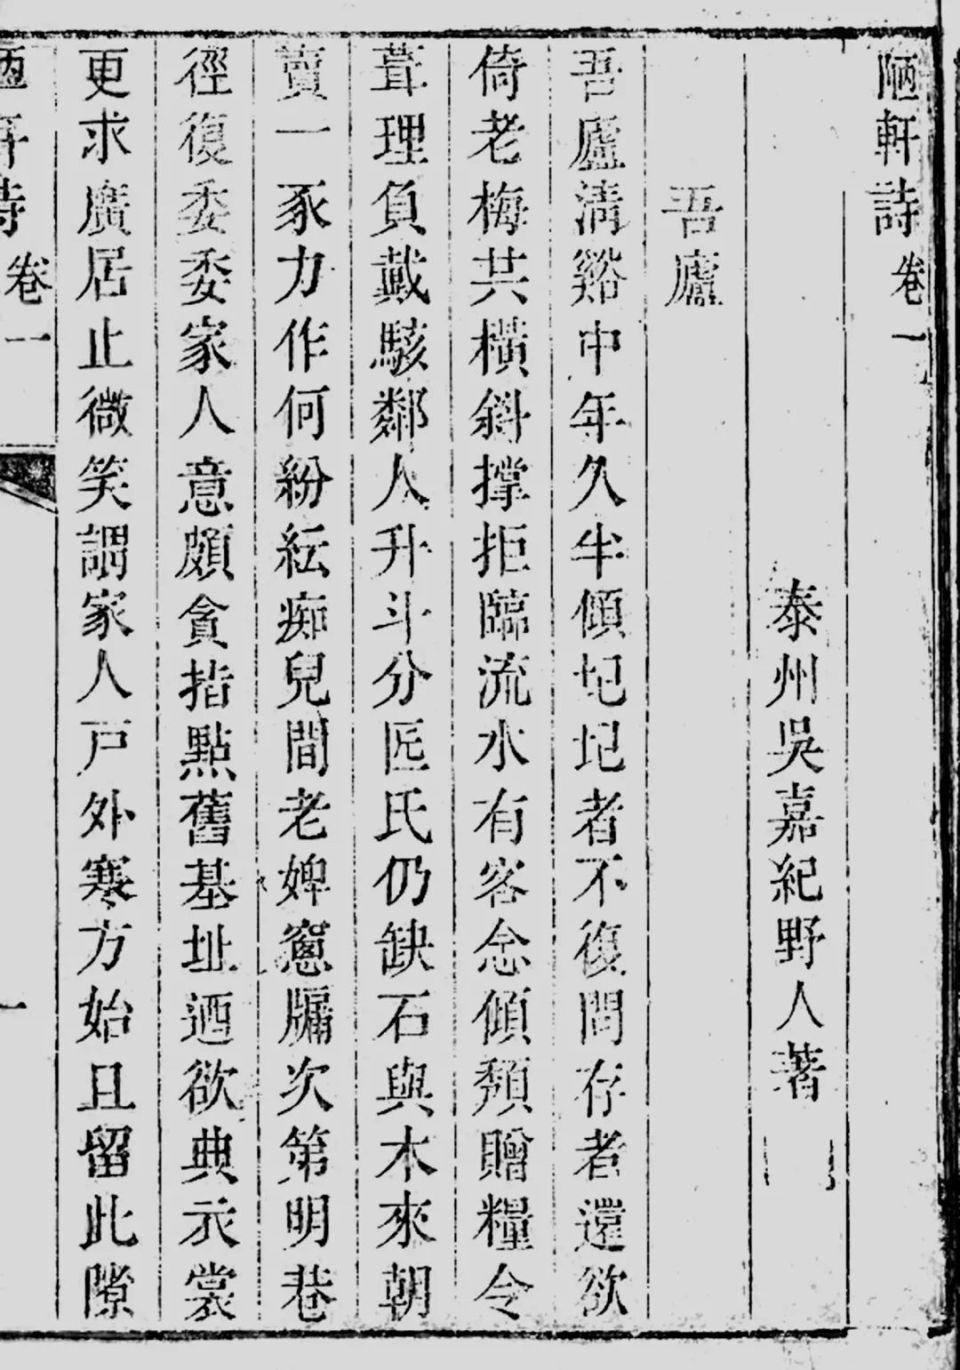 陋軒詩卷一
泰州吳嘉紀野人著
吾廬
吾廬淸谿中年久半傾圮圮者不復問存者還欲
倚老梅共橫斜撐拒臨流水有客念傾頹贈糧令
葺理負戴駭鄰人升斗分匠氏仍缺石與木來朝
賣一豕力作何紛紜痴兒間老婢窻牖次第明巷
徑復委委家人意頗貪指點舊基址迺欲典衣裳
更求廣居止微笑謂家人戸外寒方始且留此隙
陋軒詩卷一
一